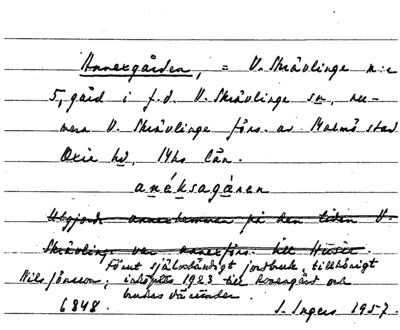 Annexgården, = V. Skrävlinge n:r
5, gård i f.d. V. Skrävlinge sn, nu-
mera V. Skrävlinge förs. av Malmö stad
Oxie hd, Mhs län.
anéksagáren
Utgjorde annexhemman på den tiden V.
Skrävlinge var annexförs. till Husie.
Förut självständigt jordbruk, tillhörigt
Nils Jönsson; inköptes 1923 till Rosengård och
brukas därunder.
6848. S. Ingers 1957.